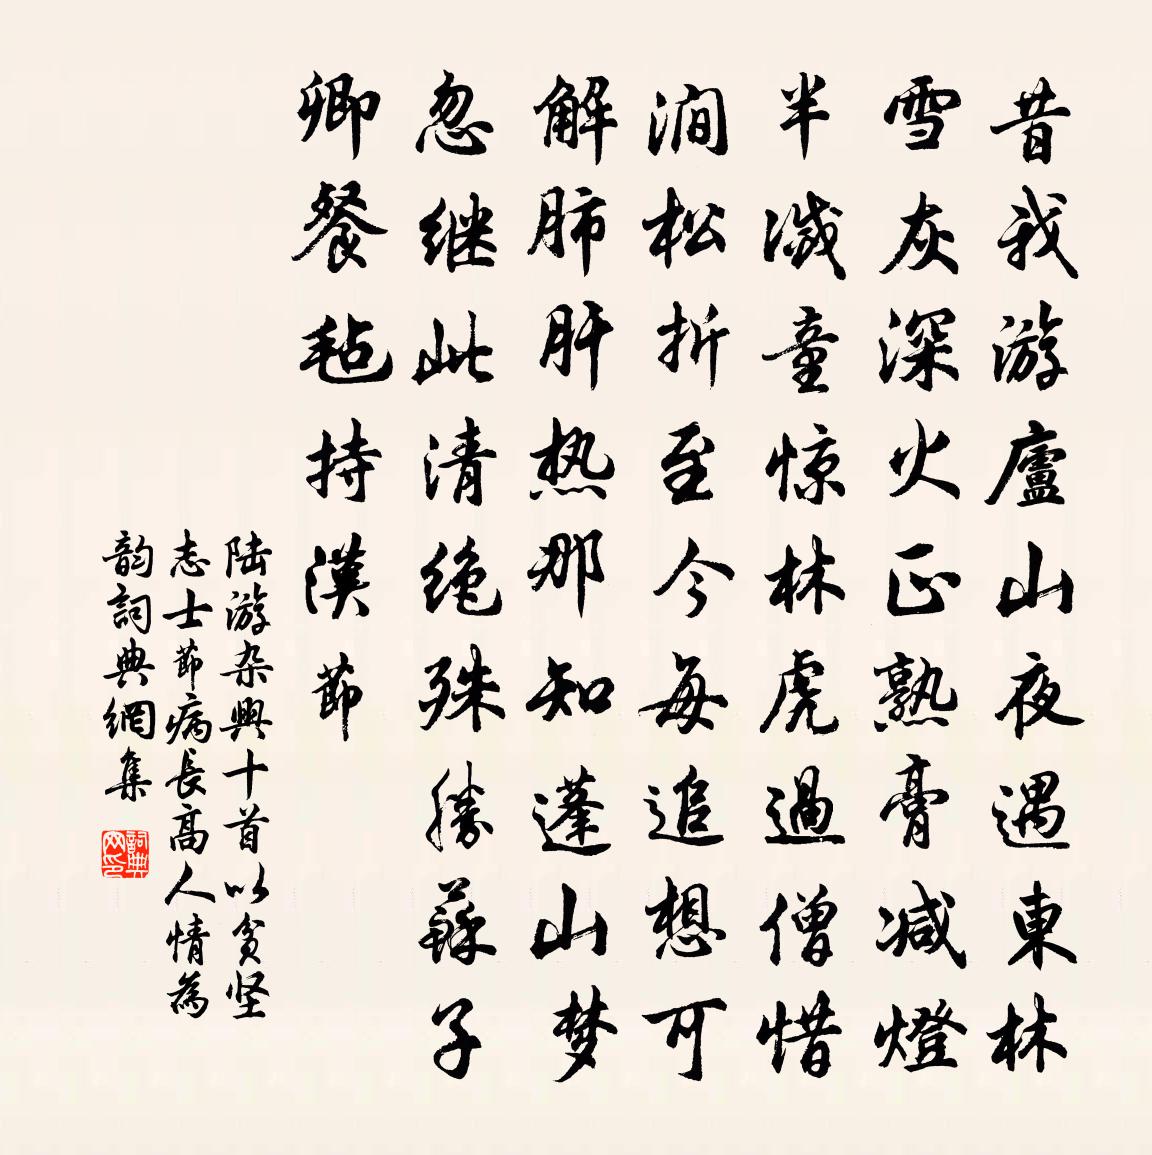 昔我游廬山夜遇東林
雪灰深火正熟膏减燈
半滅童惊林虎過僧惜
澗松折至今每追想可
解肺肝热那知蓬山梦
忽继此清绝殊勝蘇子
卿餐毡持漢節
陆游杂興十首以貧坚
志士節病長高人情為
韵詞典網集
詞典网印